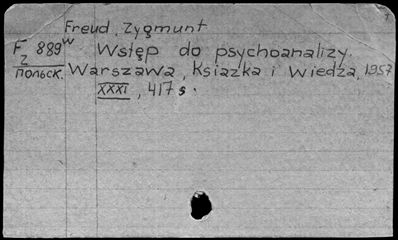 Freud, Zygmunt
F 889 w Wstęp do psychoanalizy.
2
польск. Warszawa, Ksiazka i Wiedza, 1957
XXXI, 417 s.